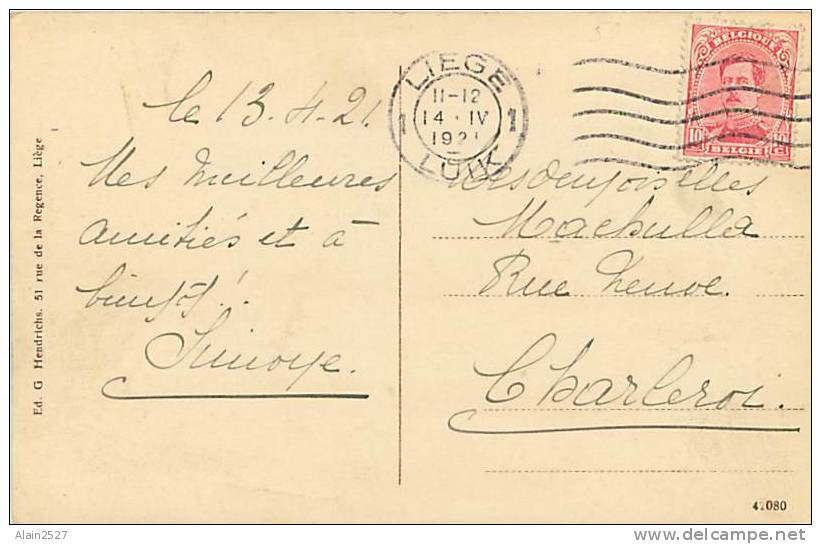 le 13.4.21.
Mes meilleures
amitiés et à
bientôt!
Simoye.
LIEGE
1 11-12 1
14 · IV
1921
LUIK
BELGIQUE
10 10
BELGIË C.
Mesdemoiselles
Machulla
Rue Neuve.
Charleroi.
Ed. G Hendrichs. 51 rue de la Regence, Liège
42080
Alain2527
delcampe.net